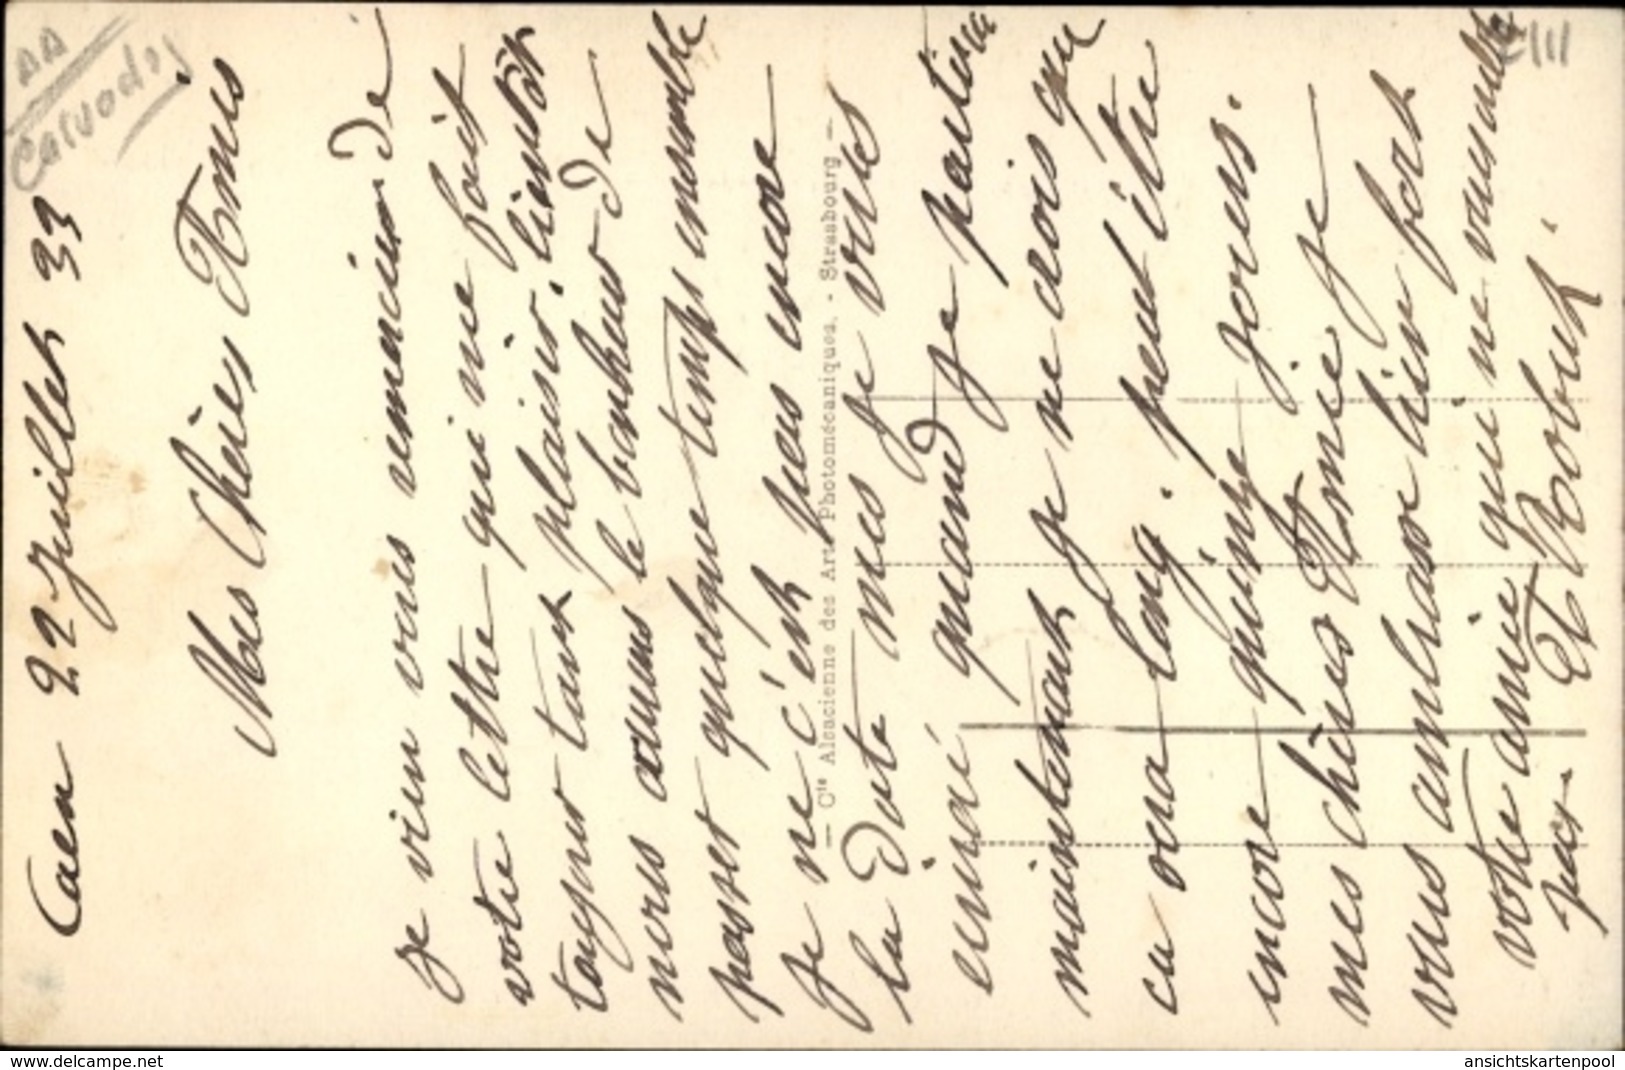 AA
Calvados
Caen 22 Juillet 33
Mes Chères Amies
je vien vous remercier de
votre lettre qui me fait
toujour tant plaisir, bientôt
nous aurons le bonheur de
passer quelque temps ensemble
Je ne c'ént pas encore
la date mes je vous
quand je partirai
maintenant je ne crois que
ca sera long. peut être
encore quinze jours.
mes chères Amie je
vous embrasse bien fort
votre amie qui ne vous oublie
pas Et Robert.
— Cie Alsacienne des Arts Photomécaniques. - Strasbourg —
www.delcampe.net
ansichtskartenpool